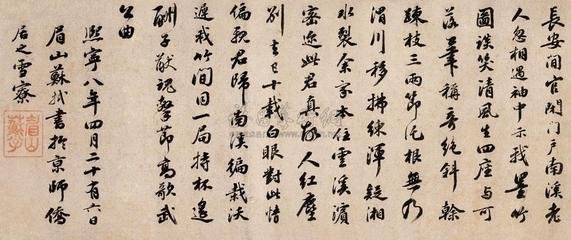 長安閒官閉門戶南溪老
人忽相遇袖中示我墨竹
圖談笑清風生四座與可
落筆稱奇絕斜幹
疎枝三兩節託根無乃
渭川移拂練渾疑湘
水裂余家本住雲溪濱
密邇此君真可人紅塵
別去已十載白眼對此情
偏親君歸南溪編栽沃
遲我竹間同一局持杯遙
酬子猷魂擊節高歌武
公曲
熙寧八年四月二十有六日
眉山蘇軾書於京師僑
居之雪寮
眉山蘇軾